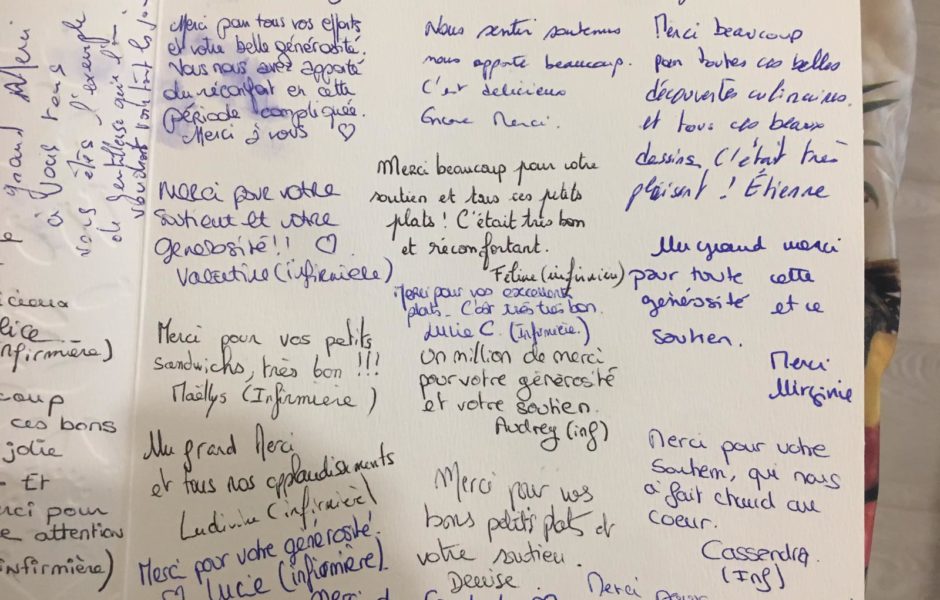 grand Merci
à vous tous
vous êtes l'exemple
de gentillesse qui
icieux
lice
nfirmière)
coup
ces bons
jolie
- Et
rci pour
e attention
infirmière)
Merci pour tous vos efforts
et votre belle générosité.
Vous nous avez apporté
du réconfort en cette
période compliquée.
Merci à vous ♡
Merci pour votre
soutient et votre
générosité!! ♡
Valentine (infirmière)
Merci pour vos petits
sandwichs, très bon !!!
Maëllys (Infirmière)
Un grand Merci
et tous nos applaudisements
Ludivine (infirmière)
Merci pour votre générosité.
♡ Lucie (infirmière)
Nous sentir soutenus
nous apporte beaucoup.
C'est délicieux
Encore Merci.
Merci beaucoup pour votre
soutien et tous ces petits
plats ! C'était très bon
et réconfortant.
(infirmière)
Merci pour vos excellents
plats. C'est très très bon.
Julie C. (Infirmière)
Un million de merci
pour votre générosité
et votre soutien.
Audrey (inf)
Merci pour vos
bons petits plats et
votre soutien.
Denise
Merci beaucoup
pour toutes ces belles
découvertes culinaires.
et tous ces beaux
dessins. C'était très
plaisant ! Étienne
Un grand merci
pour toute cette
générosité et ce
soutien.
Merci
Virginie
Merci pour votre
Soutien, qui nous
a fait chaud au
coeur.
Cassendra
(Inf)
Merci pour